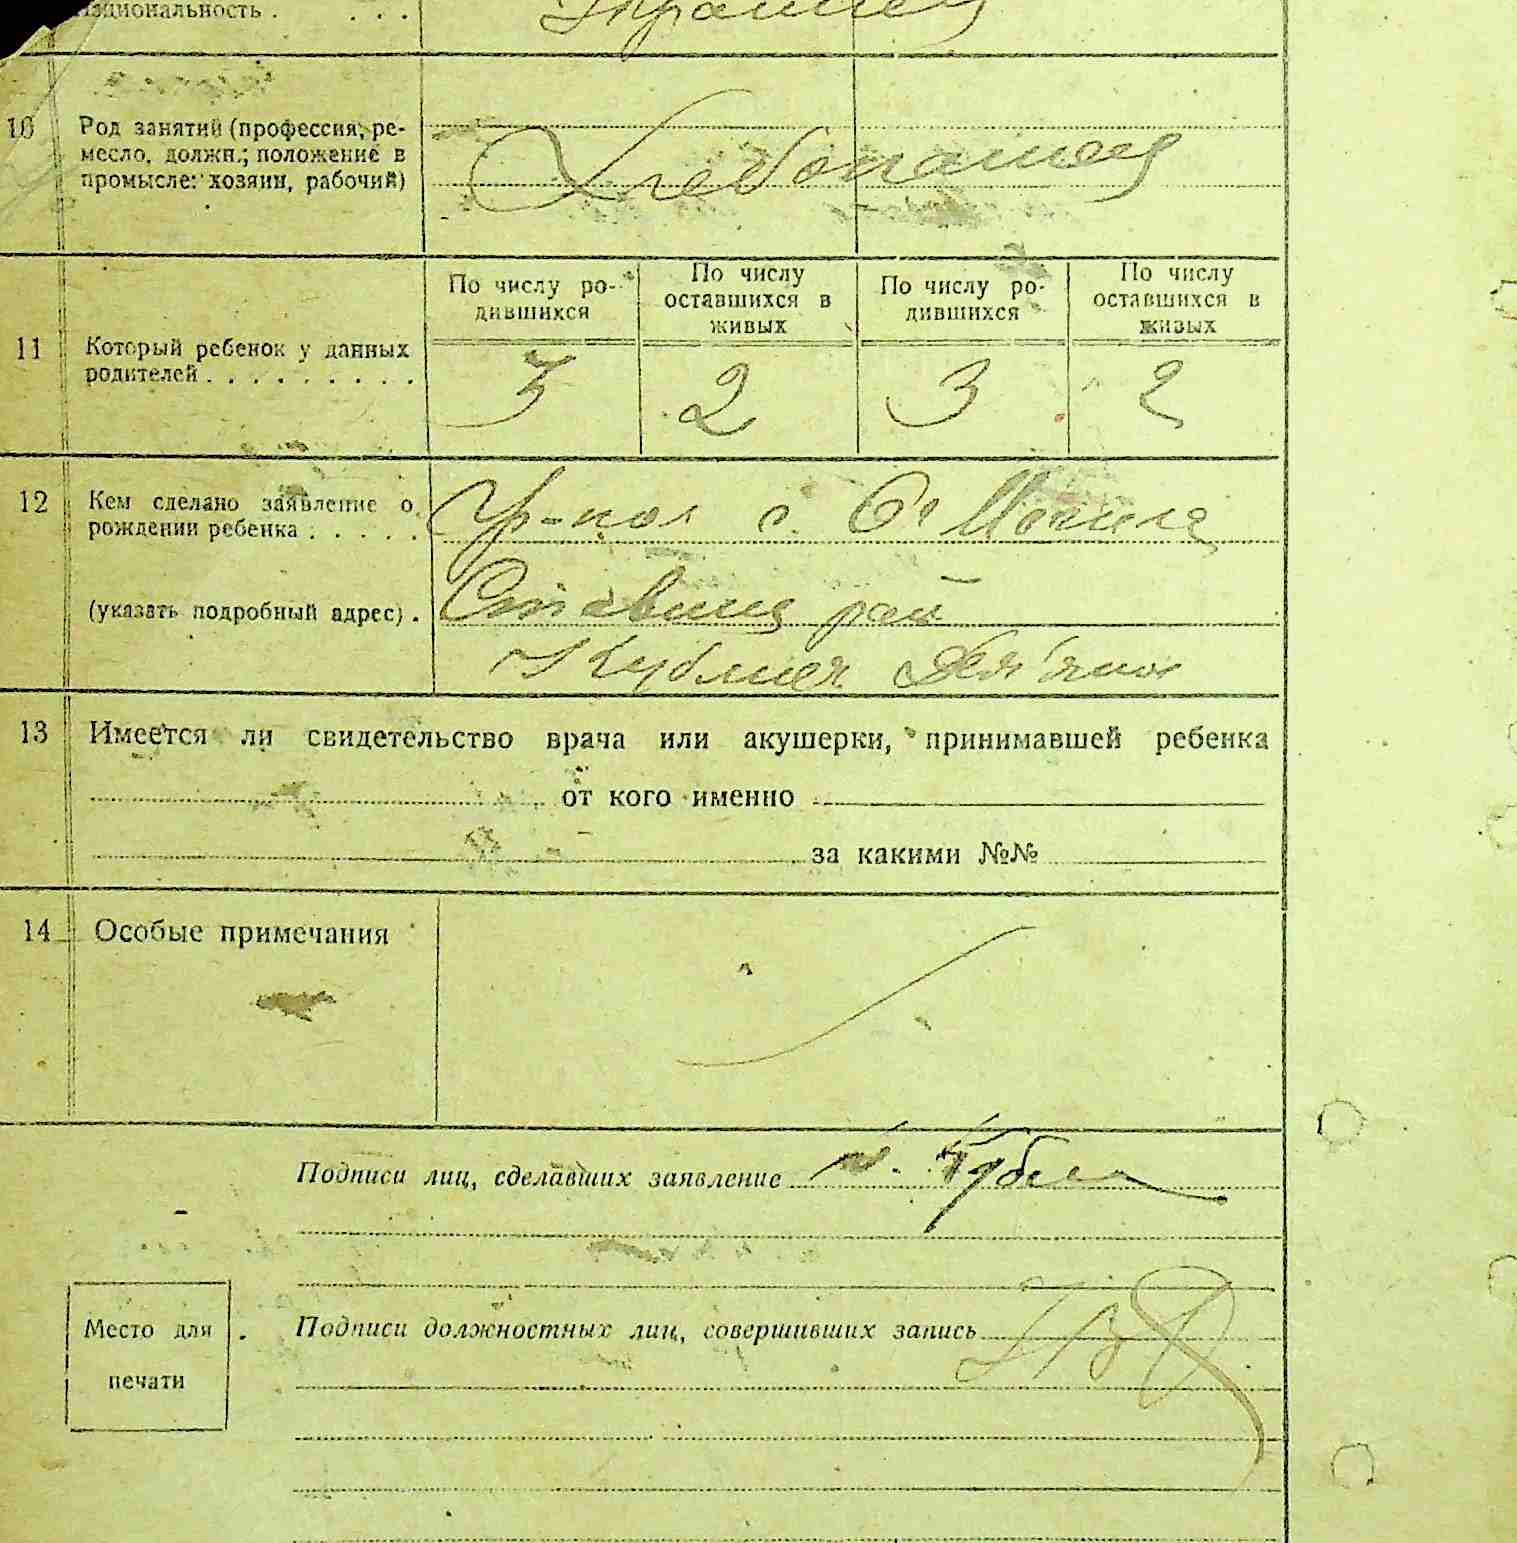 Национальность . . . . Украинец
10 Род занятий (профессия, ре-
месло, должн.; положение в
промысле: хозяин, рабочий)
Хлебопашец
По числу ро-
дившихся
По числу
оставшихся в
живых
По числу ро-
дившихся
По числу
оставшихся в
живых
11 Который ребенок у данных
родителей . . . . . . . . .
3 2 3 2
12 Кем сделано заявление о
рождении ребенка . . . . .
(указать подробный адрес) .
с. Ст Могила
Ставищ рай
13 Имеется ли свидетельство врача или акушерки, принимавшей ребенка
от кого именно
за какими №№
14 Особые примечания
Подписи лиц, сделавших заявление
Место для
печати
Подписи должностных лиц, совершивших запись